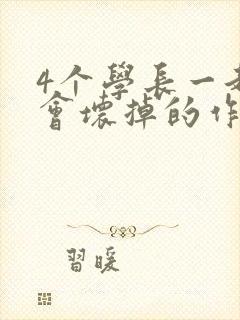 4个學長一
會壞掉的作
習暖